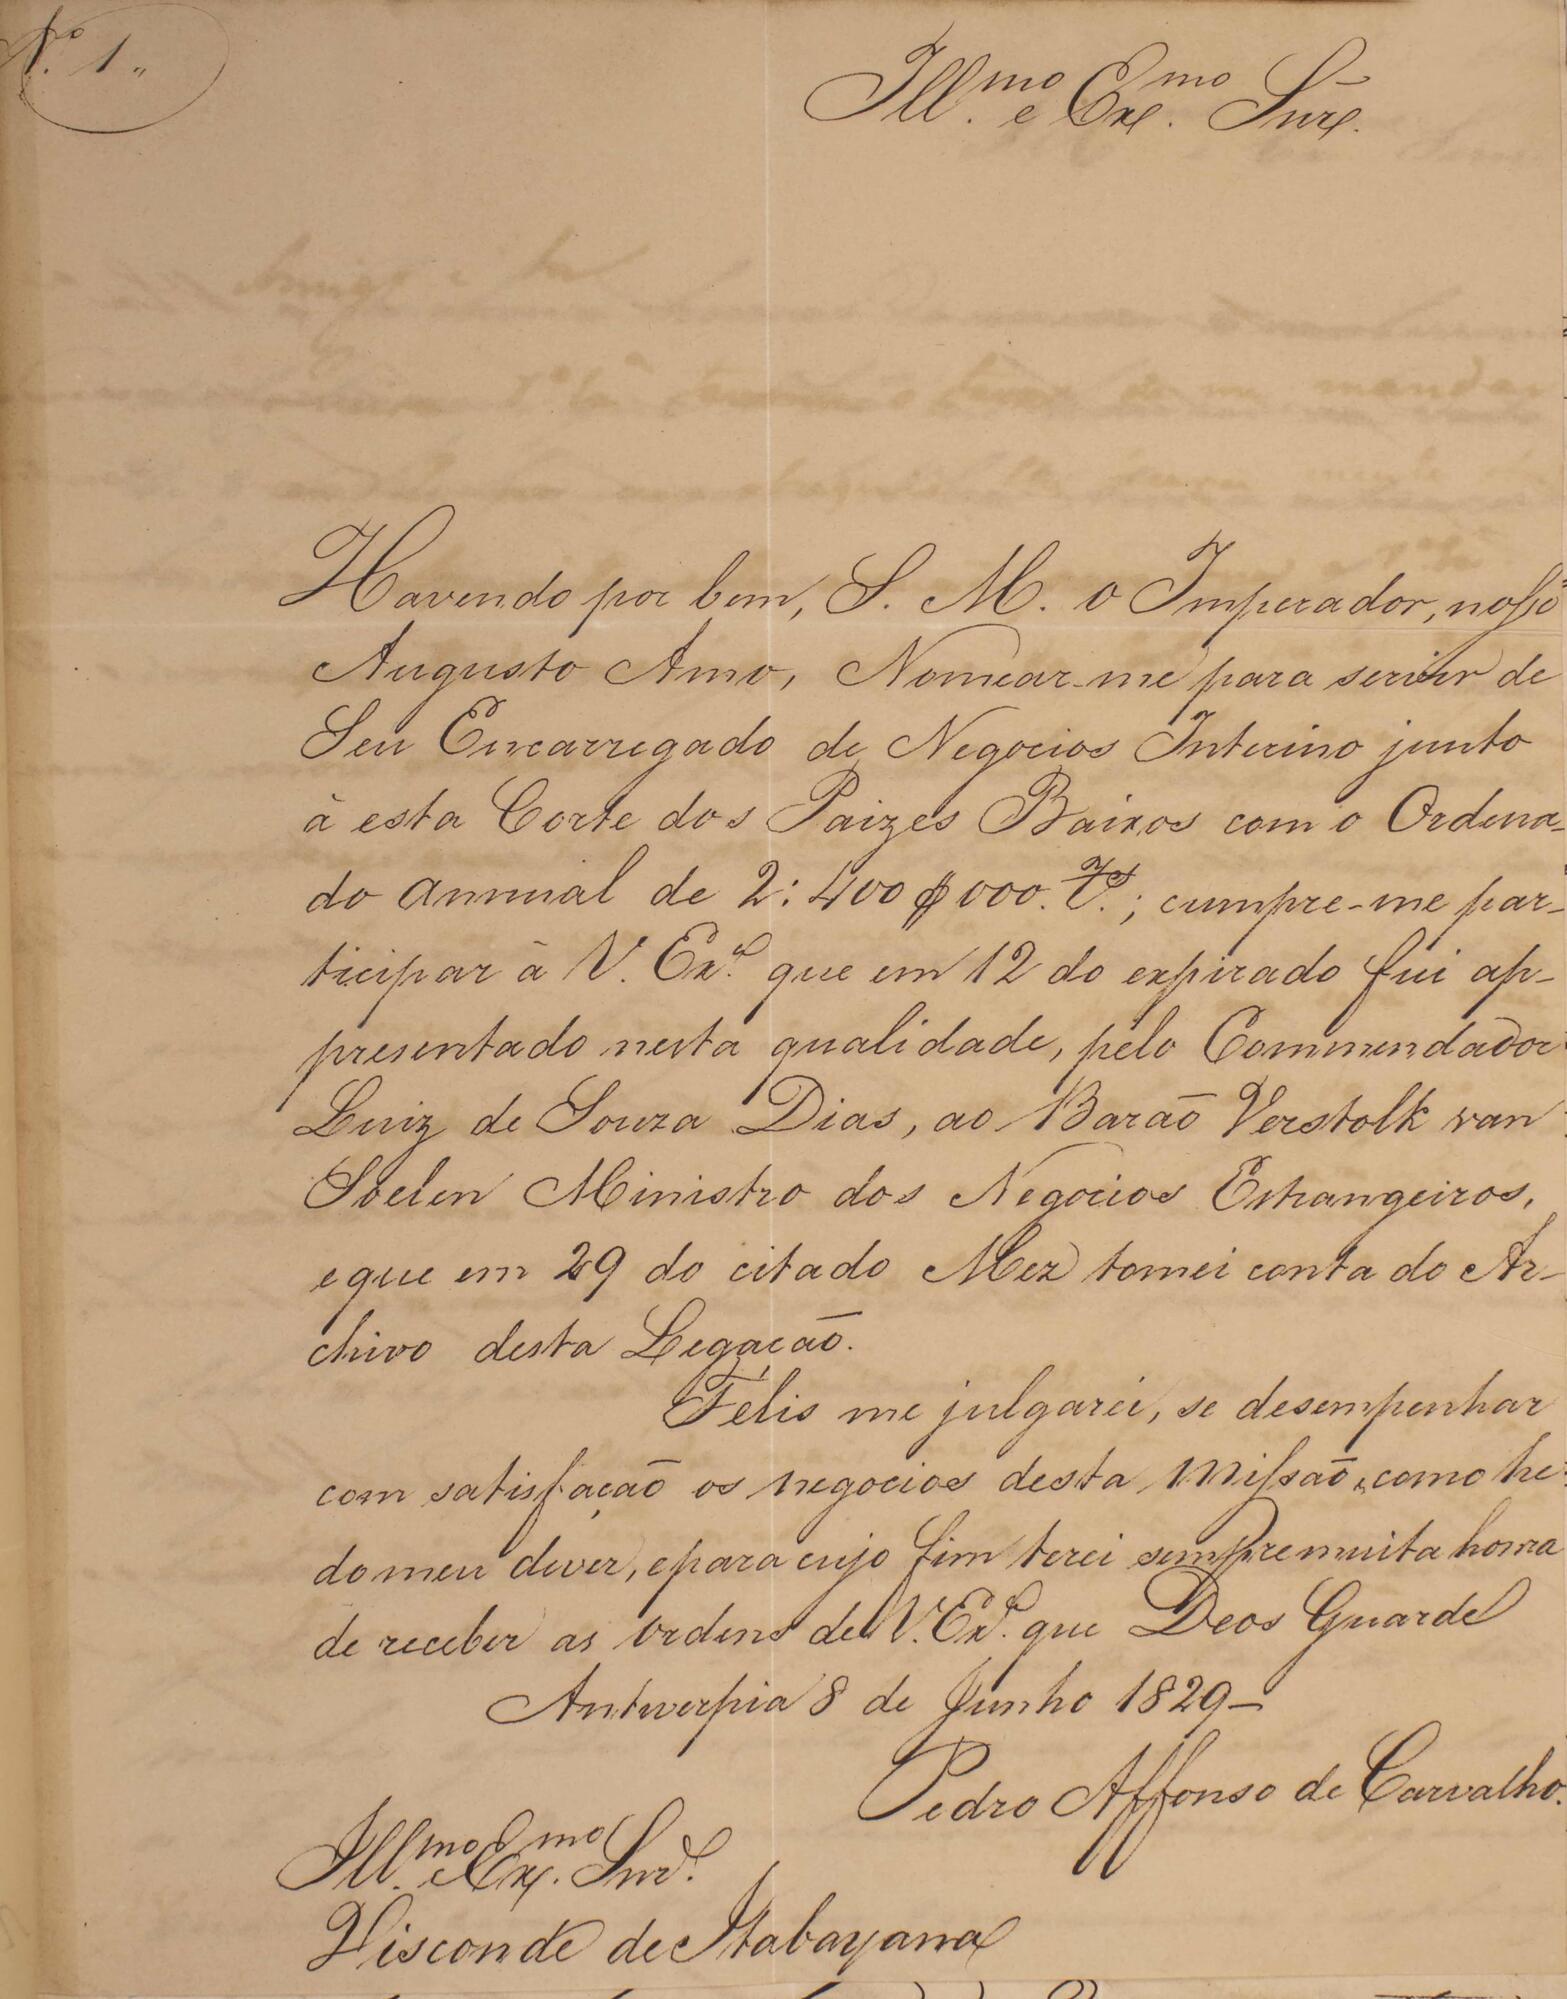 N.º 1 „
Ill.mo e Ex.mo Snr.
Havendo por bem, S. M. o Imperador, nosso
Augusto Amo, Nomear-me para servir de
Seu Encarregado de Negocios Interino junto
à esta Corte dos Paizes Baixos com o Ordena-
do annual de 2:400$000. rs.; cumpre-me par-
ticipar à V. Ex.ª que em 12 do expirado fui ap-
presentado nesta qualidade, pelo Commendador
Luiz de Souza Dias, ao Barão Verstolk van
Soelen Ministro dos Negocios Estrangeiros,
e que em 29 do citado Mez tomei conta do Ar-
chivo desta Legação.
Félis me julgarei, se desempenhar
com satisfação os negocios desta Missão, como he
do meu dever, e para cujo fim terei sempre muita honra
de receber as ordens de V. Ex.ª que Deos Guarde
Antwerpia 8 de Junho 1829 —
Pedro Affonso de Carvalho.
Ill.mo e Ex.mo Snr.
Visconde de Itabayana